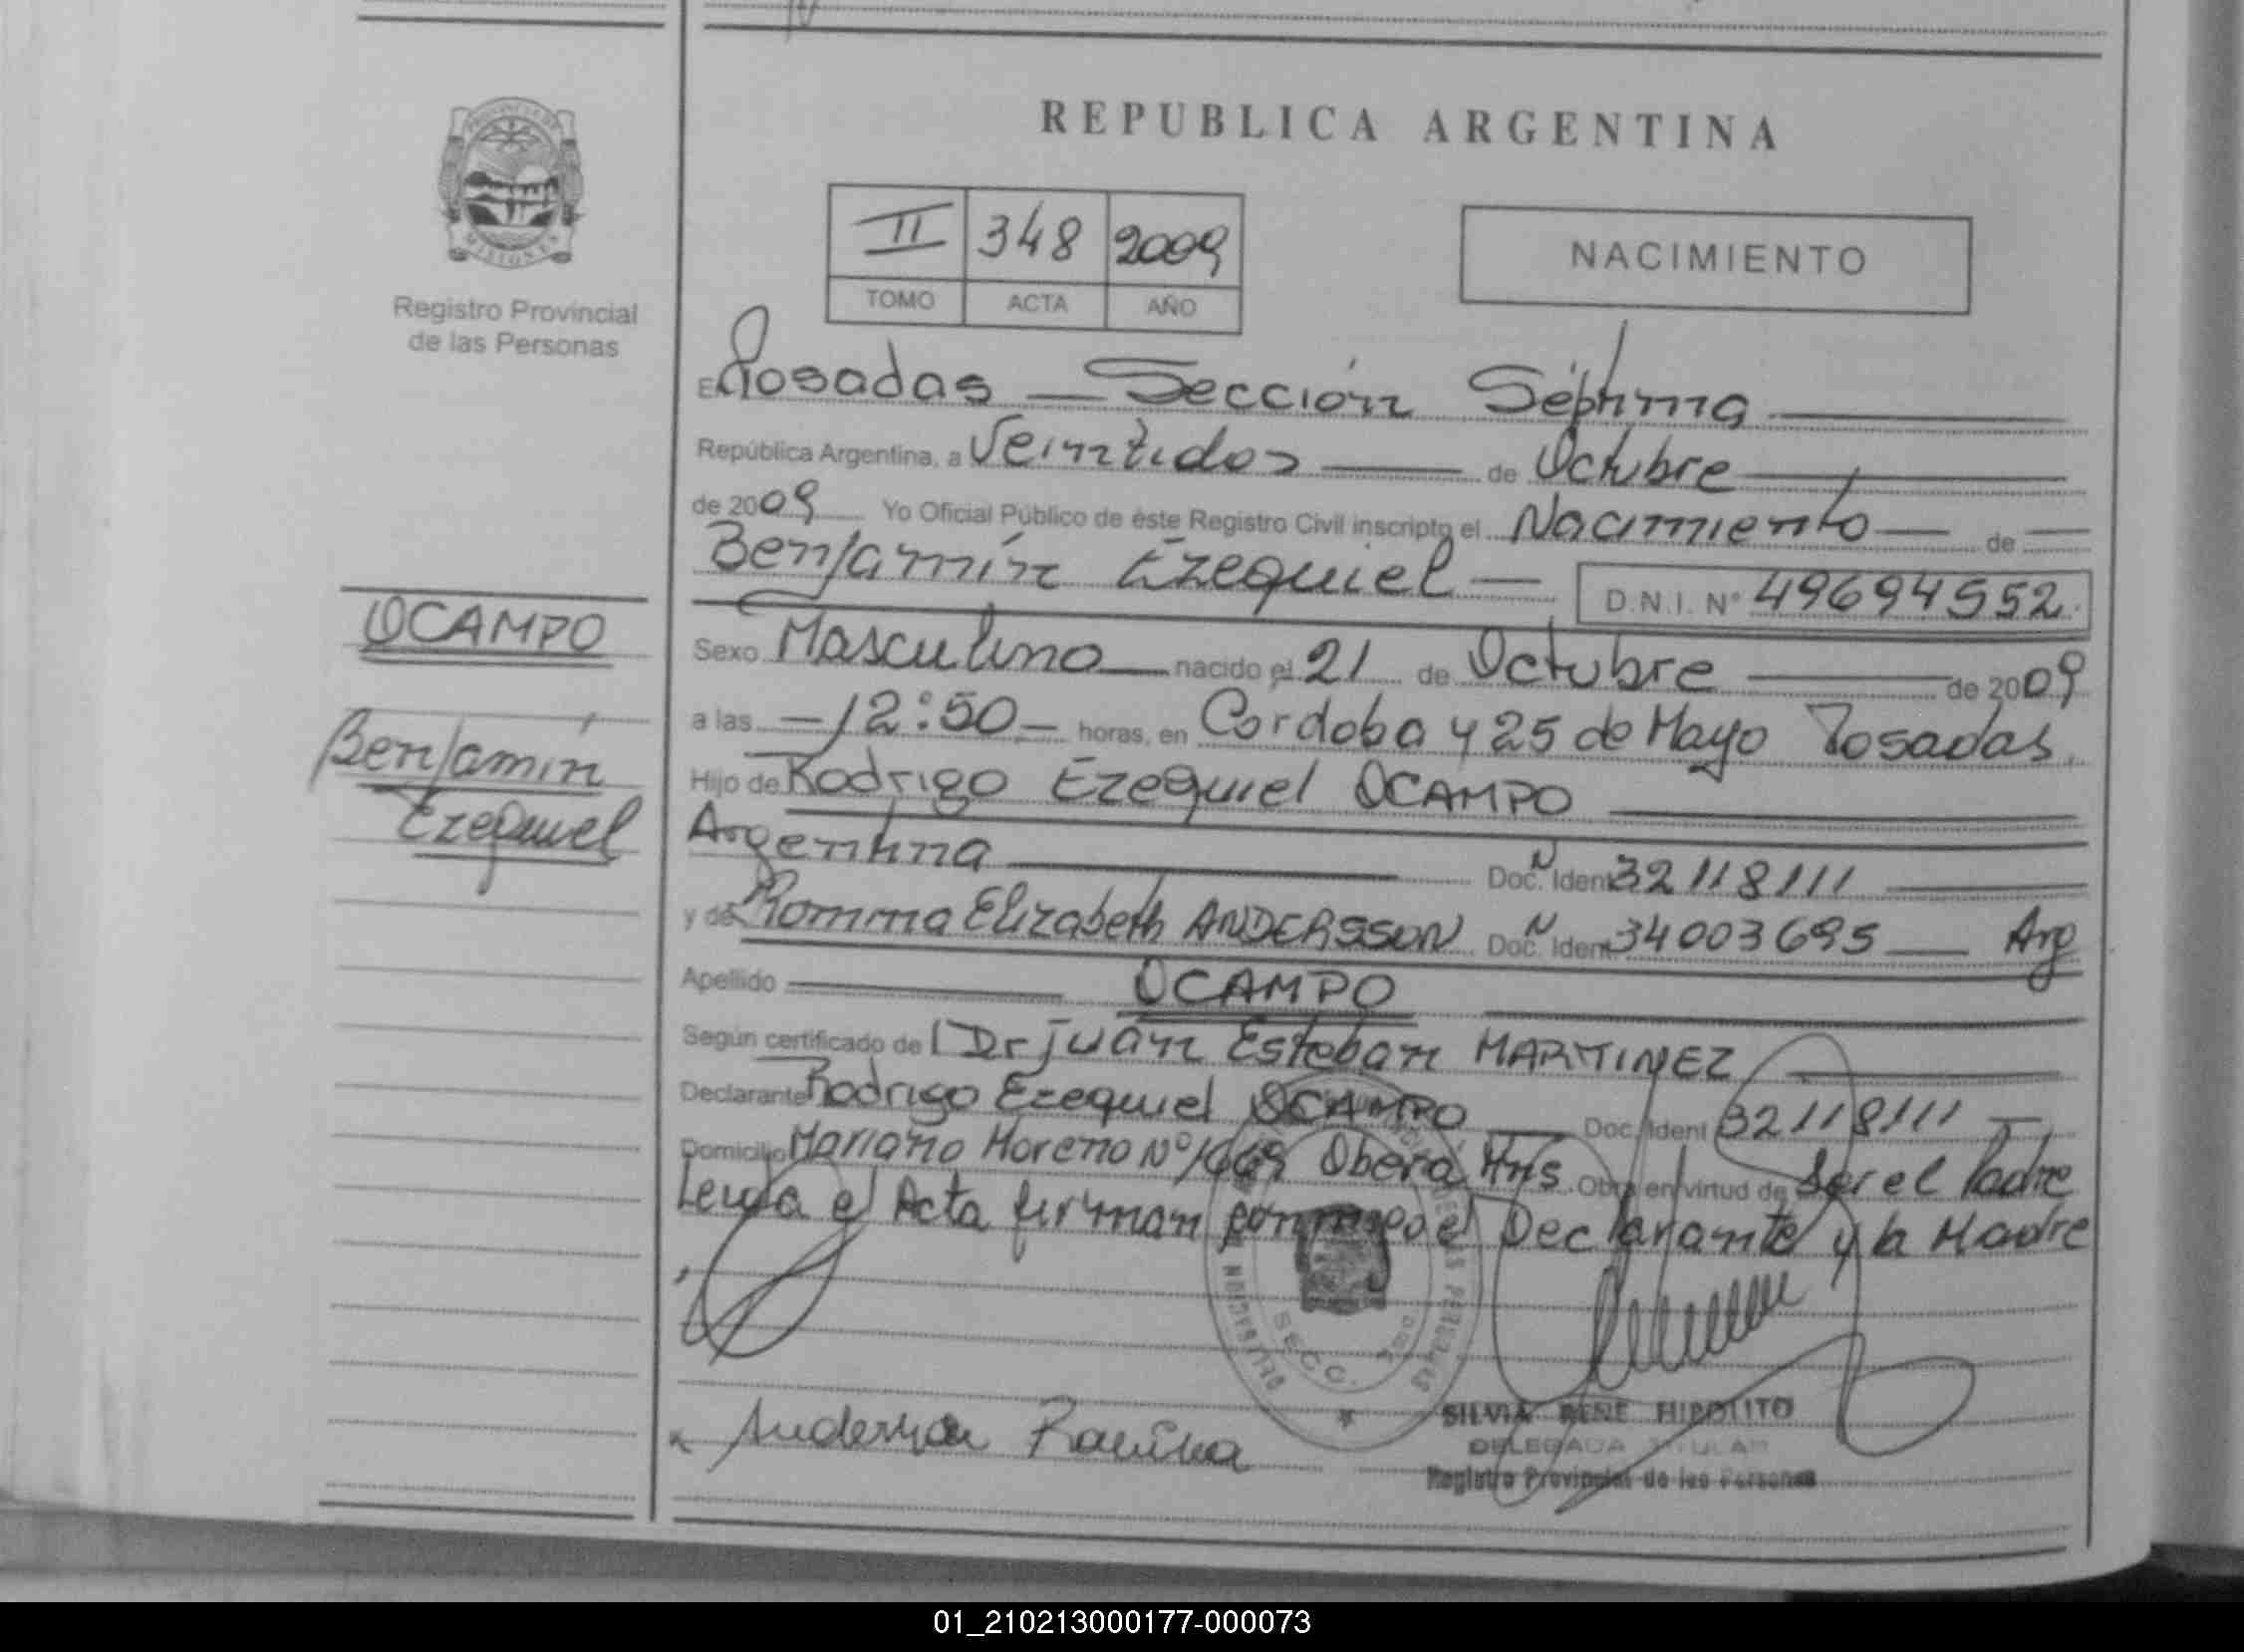 PROVINCIA DE
MISIONES
Registro Provincial
de las Personas
OCAMPO
Benjamín
Ezequiel
REPUBLICA ARGENTINA
II 348 2009
TOMO ACTA AÑO
NACIMIENTO
En Posadas — Sección Séptima
República Argentina, a Veintidos de Octubre
de 2009 Yo Oficial Público de éste Registro Civil inscripto el Nacimiento de
Benjamín Ezequiel D.N.I. N° 49694552
Sexo Masculino nacido el 21 de Octubre de 2009
a las 12:50 horas, en Cordoba y 25 de Mayo Posadas
Hijo de Rodrigo Ezequiel OCAMPO
Argentina Doc. Ident N 32118111
y de Romina Elizabeth ANDERSSON Doc. Ident N 34003695 Arg
Apellido OCAMPO
Según certificado del Dr Juan Esteban MARTINEZ
Declarante Rodrigo Ezequiel OCAMPO Doc. Ident 32118111
Domicilio Mariano Moreno N° Oberá Mns Obra en virtud de Ser el Padre
Leida el Acta firman conmigo el Declarante y la Madre
DELEGACION DE LAS PERSONAS
SECC.
SILVIA RENE HIPOLITO
DELEGADA TITULAR
Registro Provincial de las Personas
01_210213000177-000073